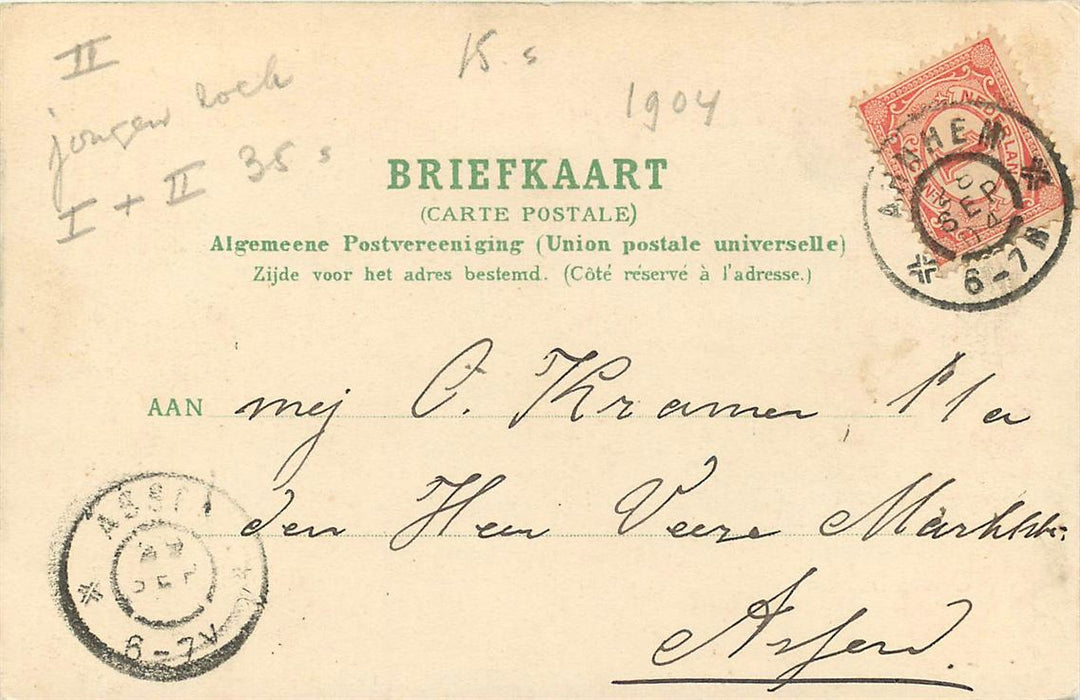 II
jongen
I + II 35 s
15. s
1904
BRIEFKAART
(CARTE POSTALE)
Algemeene Postvereeniging (Union postale universelle)
Zijde voor het adres bestemd. (Côté réservé à l'adresse.)
NEDERLAND
ARNHEM
SEP
04
6-7N
AAN mej C. Kramer p/a
den Heer Veere Marktstr.
Assen.
ASSEN
SEP
6-7V